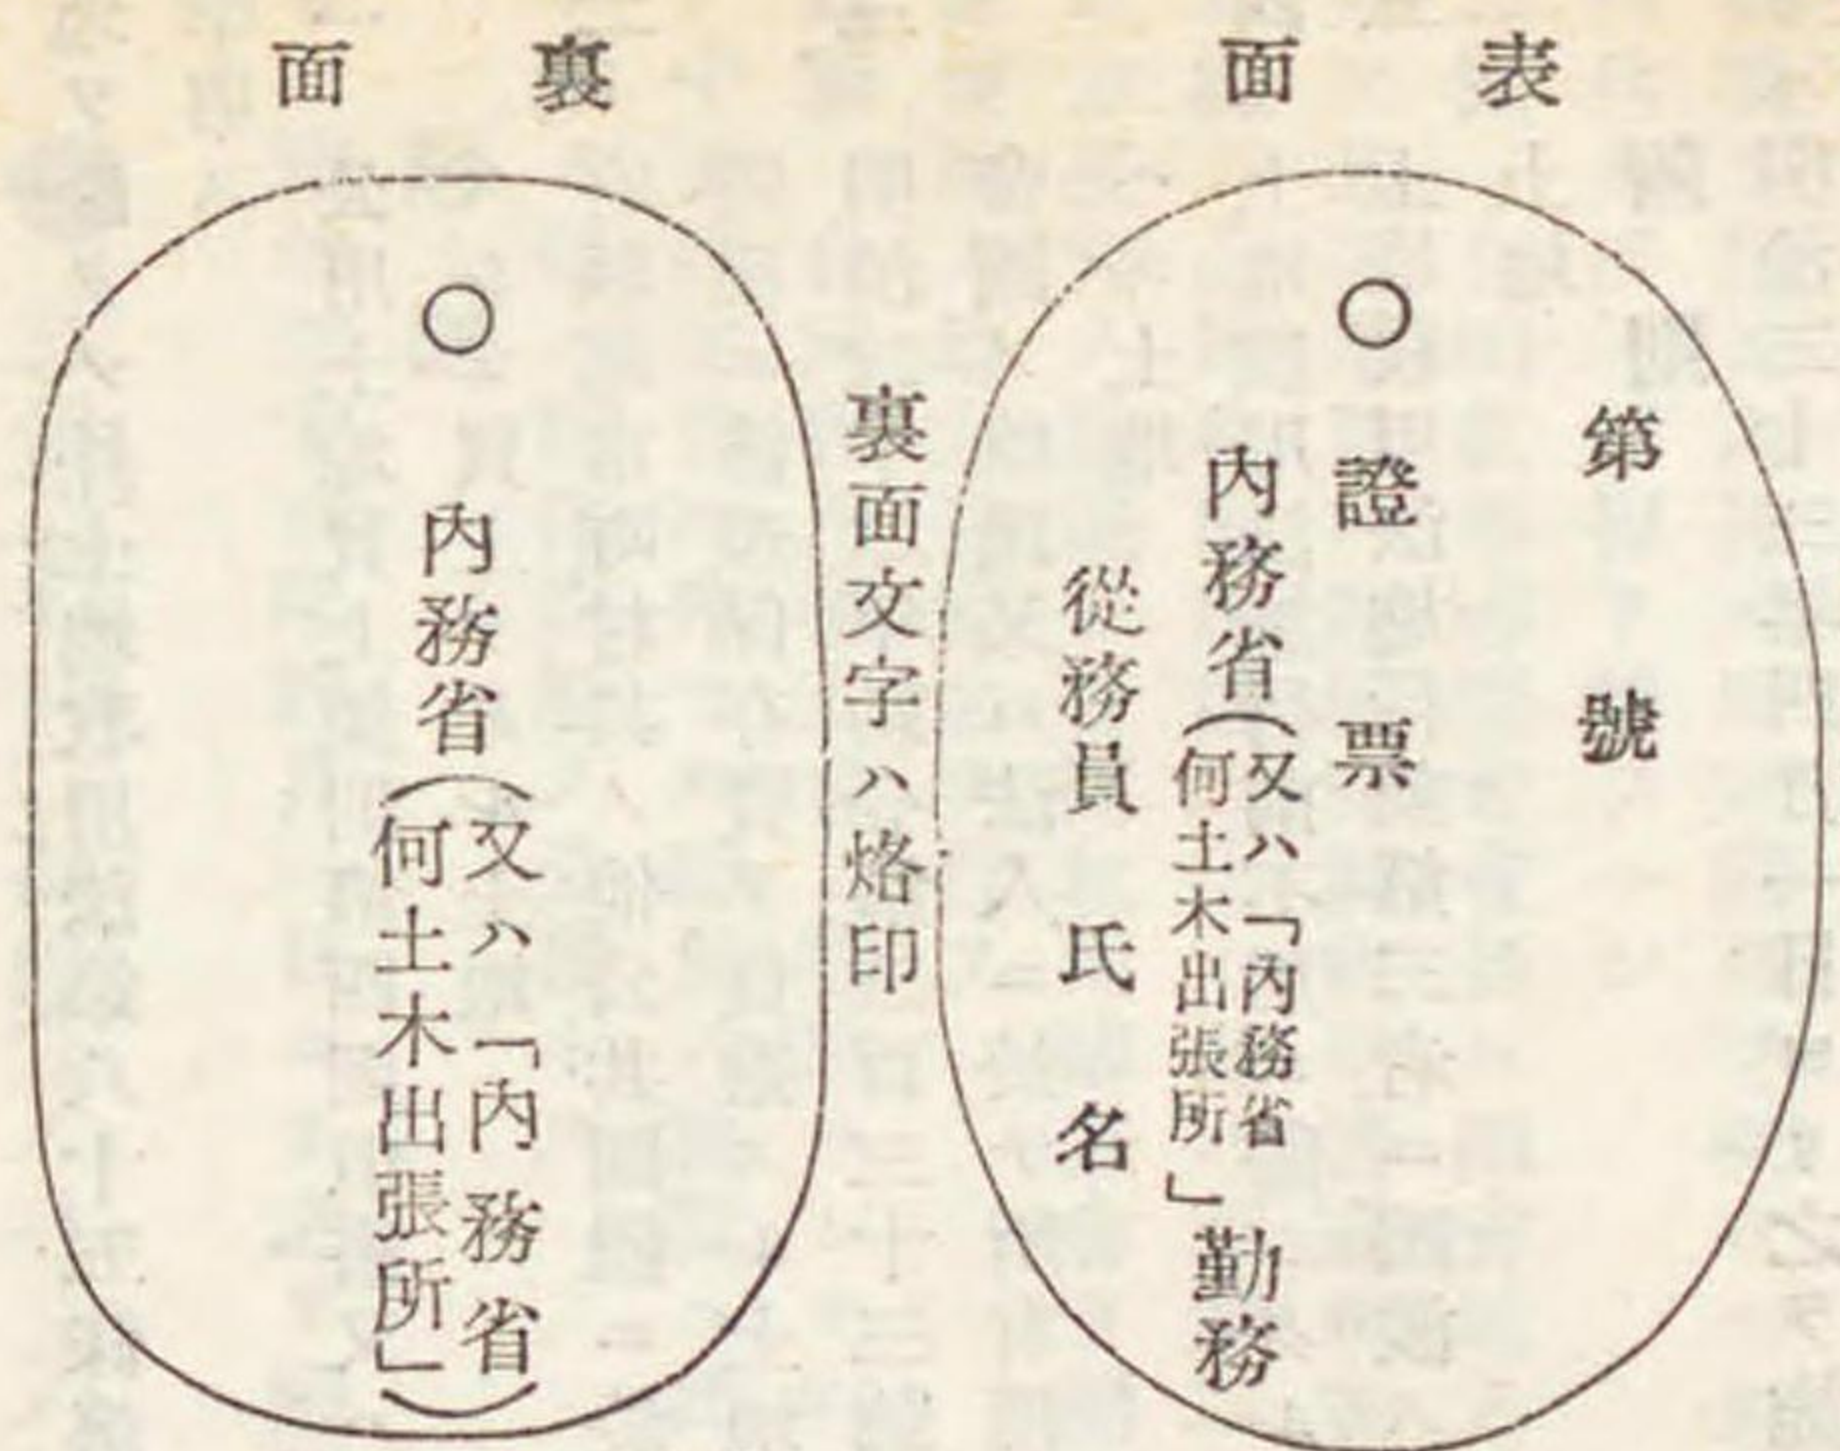 表面
第號
證票
內務省(又ハ「內務省
何土木出張所」勤務
從務員氏名
裏面文字ハ烙印
裏面
內務省(又ハ「內務省
何土木出張所」)